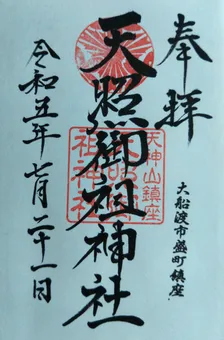 奉拝
大船渡市盛町鎮座
天照御祖神社
天神山鎮座
令和五年七月二十一日